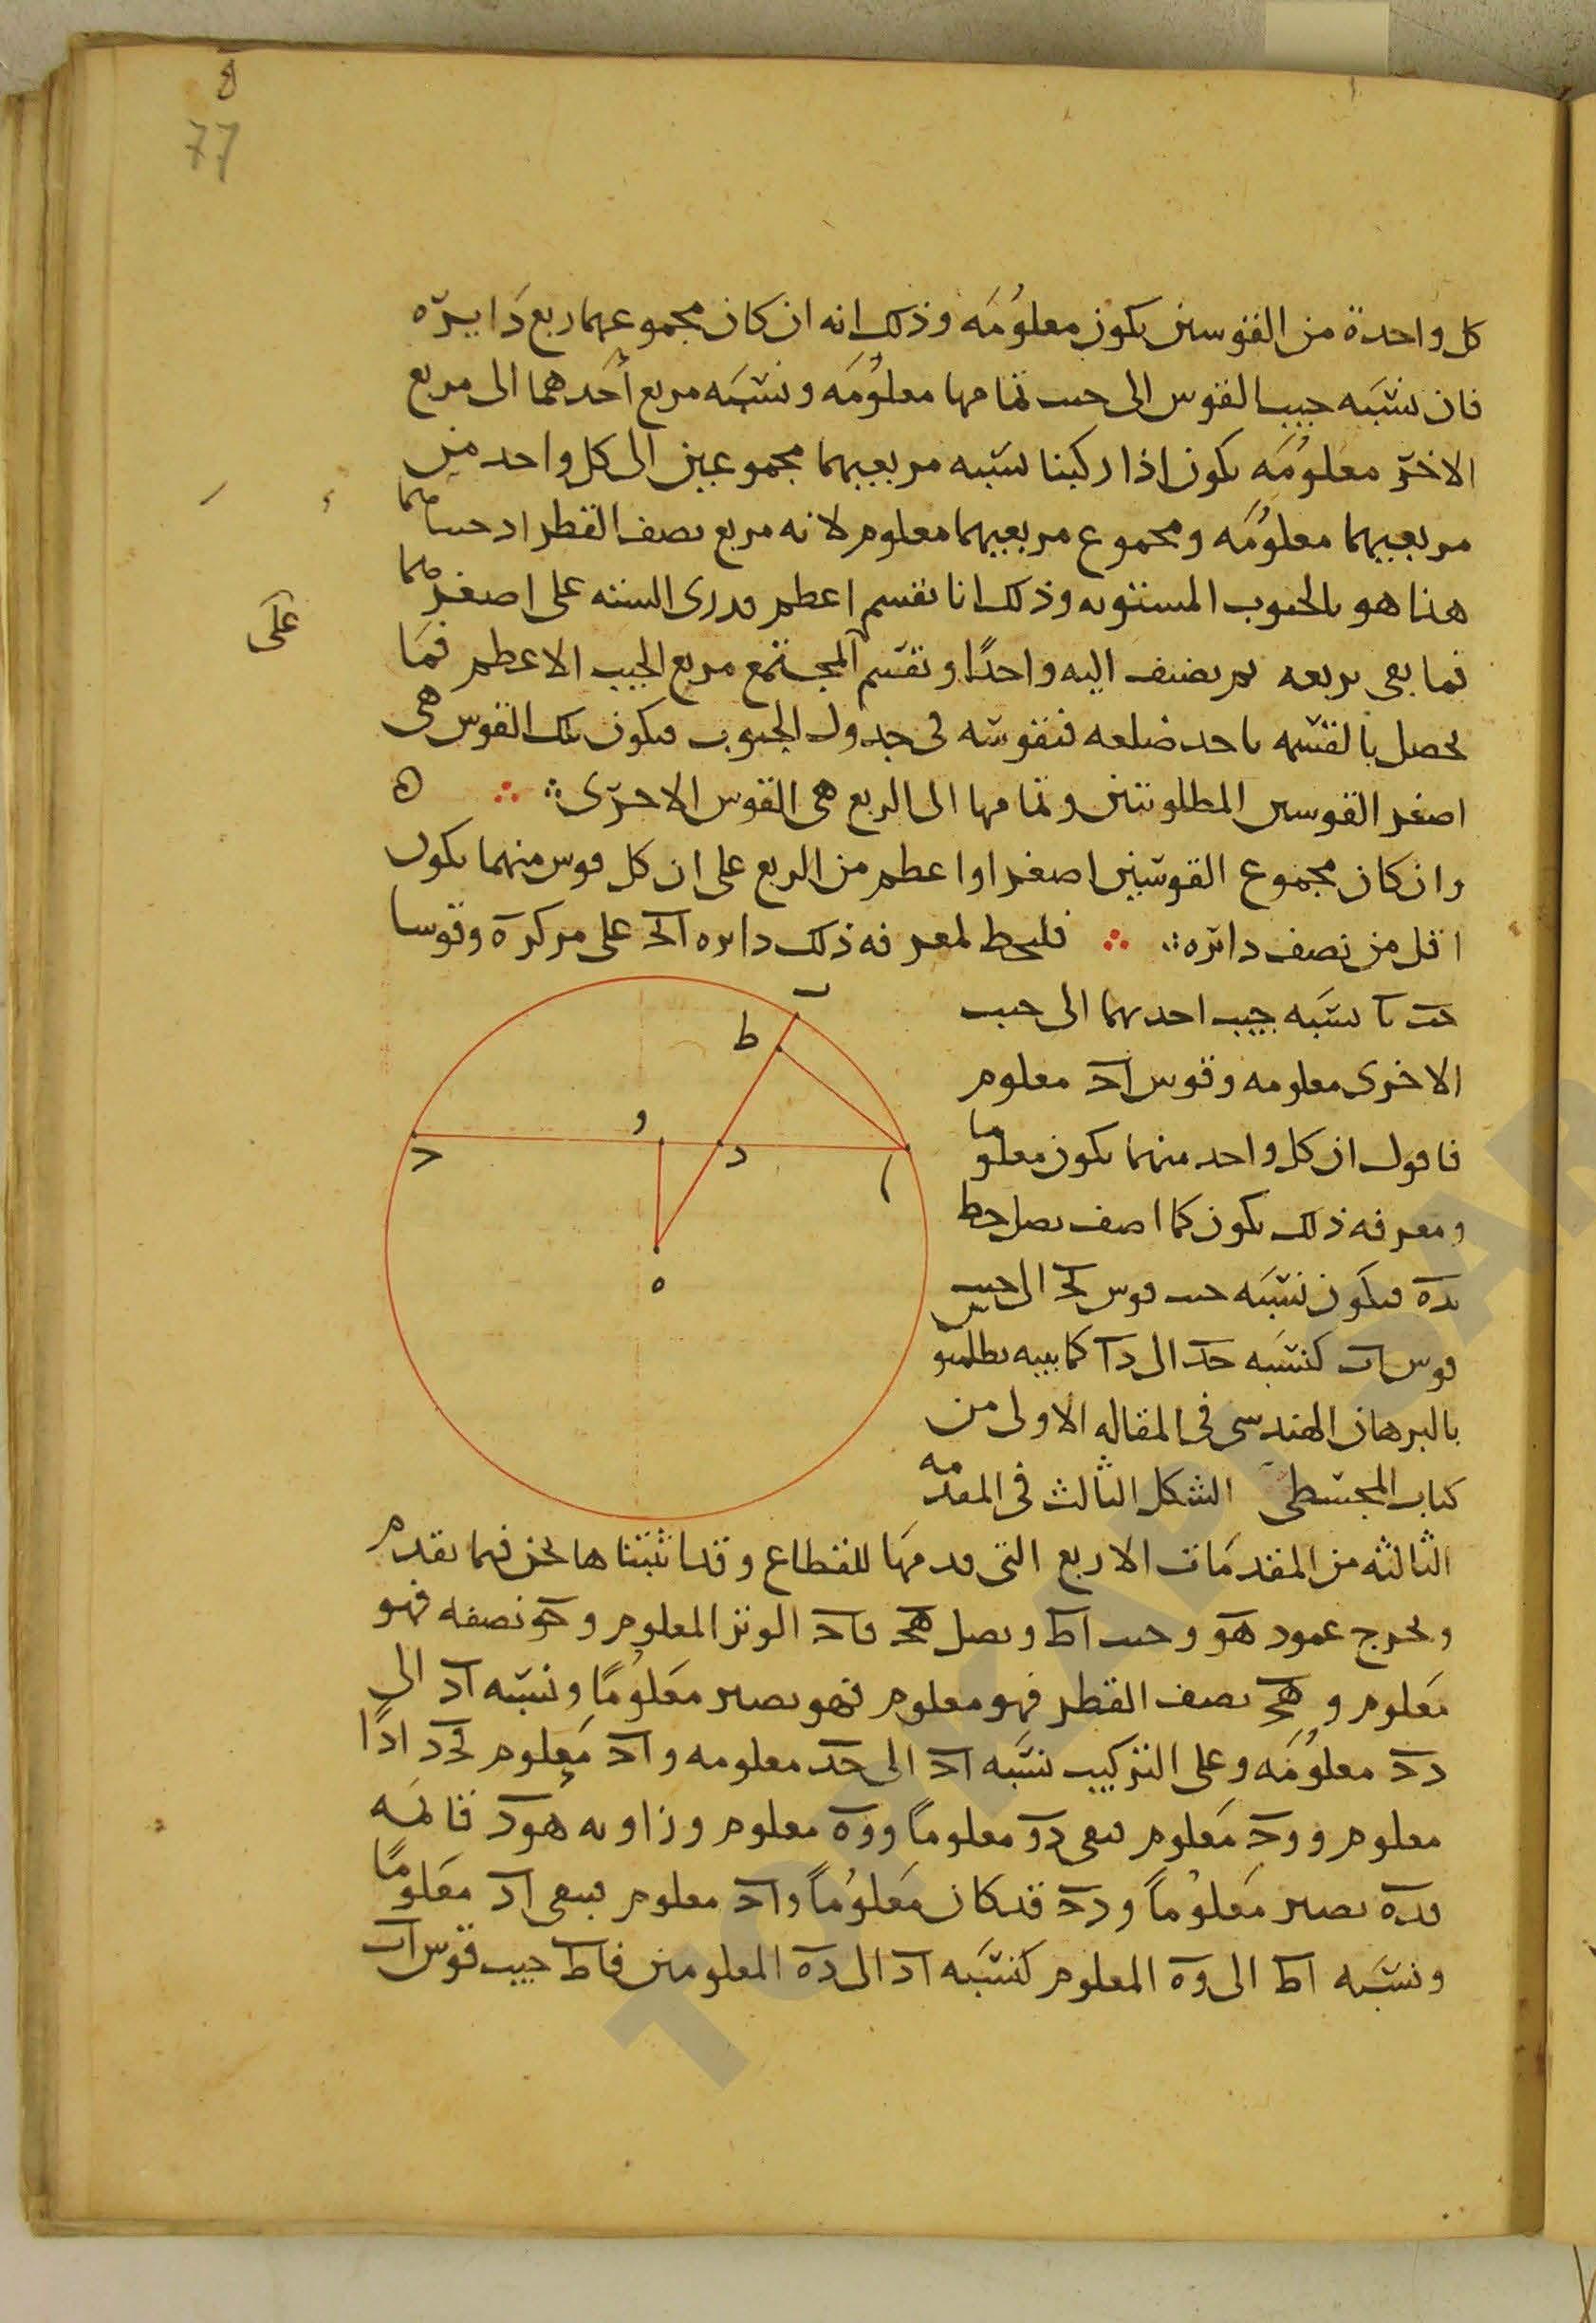 77
كل واحدة من القوسين يكون معلومه وذلك انه ان كان مجموعهما ربع دايره
فان نسبه جيب القوس الى جيب تمامها معلومه ونسبه مربع أحدهما الى مربع
الاخر معلومه يكون اذا ركبنا نسبه مربعيهما مجموعين الى كل واحد من
مربعيهما معلومه ومجموع مربعيهما معلوم لانه مربع نصف القطر اذ حسابنا
هذا هو بالجيوب المستويه وذلك انا نقسم اعظم قدرى النسبه على اصغرهما
على
فما بقى نربعه ثم نضيف اليه واحدًا ونقسم المجتمع مربع الجيب الاعظم فما
يحصل بالقسمه ناخذ ضلعه فنقوسه فى جدول الجيوب فيكون تلك القوس هى
اصغر القوسين المطلوبتين وتمامها الى الربع هى القوس الاخرى ∴ ه
وان كان مجموع القوسين اصغر او اعظم من الربع على ان كل قوس منهما يكون
اقل من نصف دائره ∴ فليخط لمعرفه ذلك دائره ابج على مركز ه وقوسا
جب با نسبه جيب احديهما الى جيب
الاخرى معلومه وقوس اج معلوم
فاقول ان كل واحد منهما يكون معلوما
ومعرفه ذلك يكون كما اصف نصل خط
بده فيكون نسبه جيب قوس بج الى جيب
قوس اب كنسبه جد الى دا كما بينه بطلميوس
بالبرهان الهندسى فى المقاله الاولى من
كتاب المجسطى الشكل الثالث فى المقدمه
الثالثه من المقدمات الاربع التى قدمها للقطاع وقد اثبتناها نحن فيما تقدم
ونخرج عمود هو وجيب اط ونصل هج فاج الوتر المعلوم وجو نصفه فهو
معلوم و هج نصف القطر فهو معلوم فهو يصير معلومًا ونسبه اد الى
دج معلومه وعلى التركيب نسبه اج الى جد معلومه واج معلوم فجد اذًا
معلوم ووج معلوم فيبقى دو معلوما ووه معلوم وزاويه هود قائمه
فده يصير معلومًا ودج قد كان معلومًا واج معلوم فيبقى اد معلومًا
ونسبه اط الى وه المعلوم كنسبه اد الى ده المعلومين فاط جيب قوس اب
ب
ط
و
د
ا
ج
ه